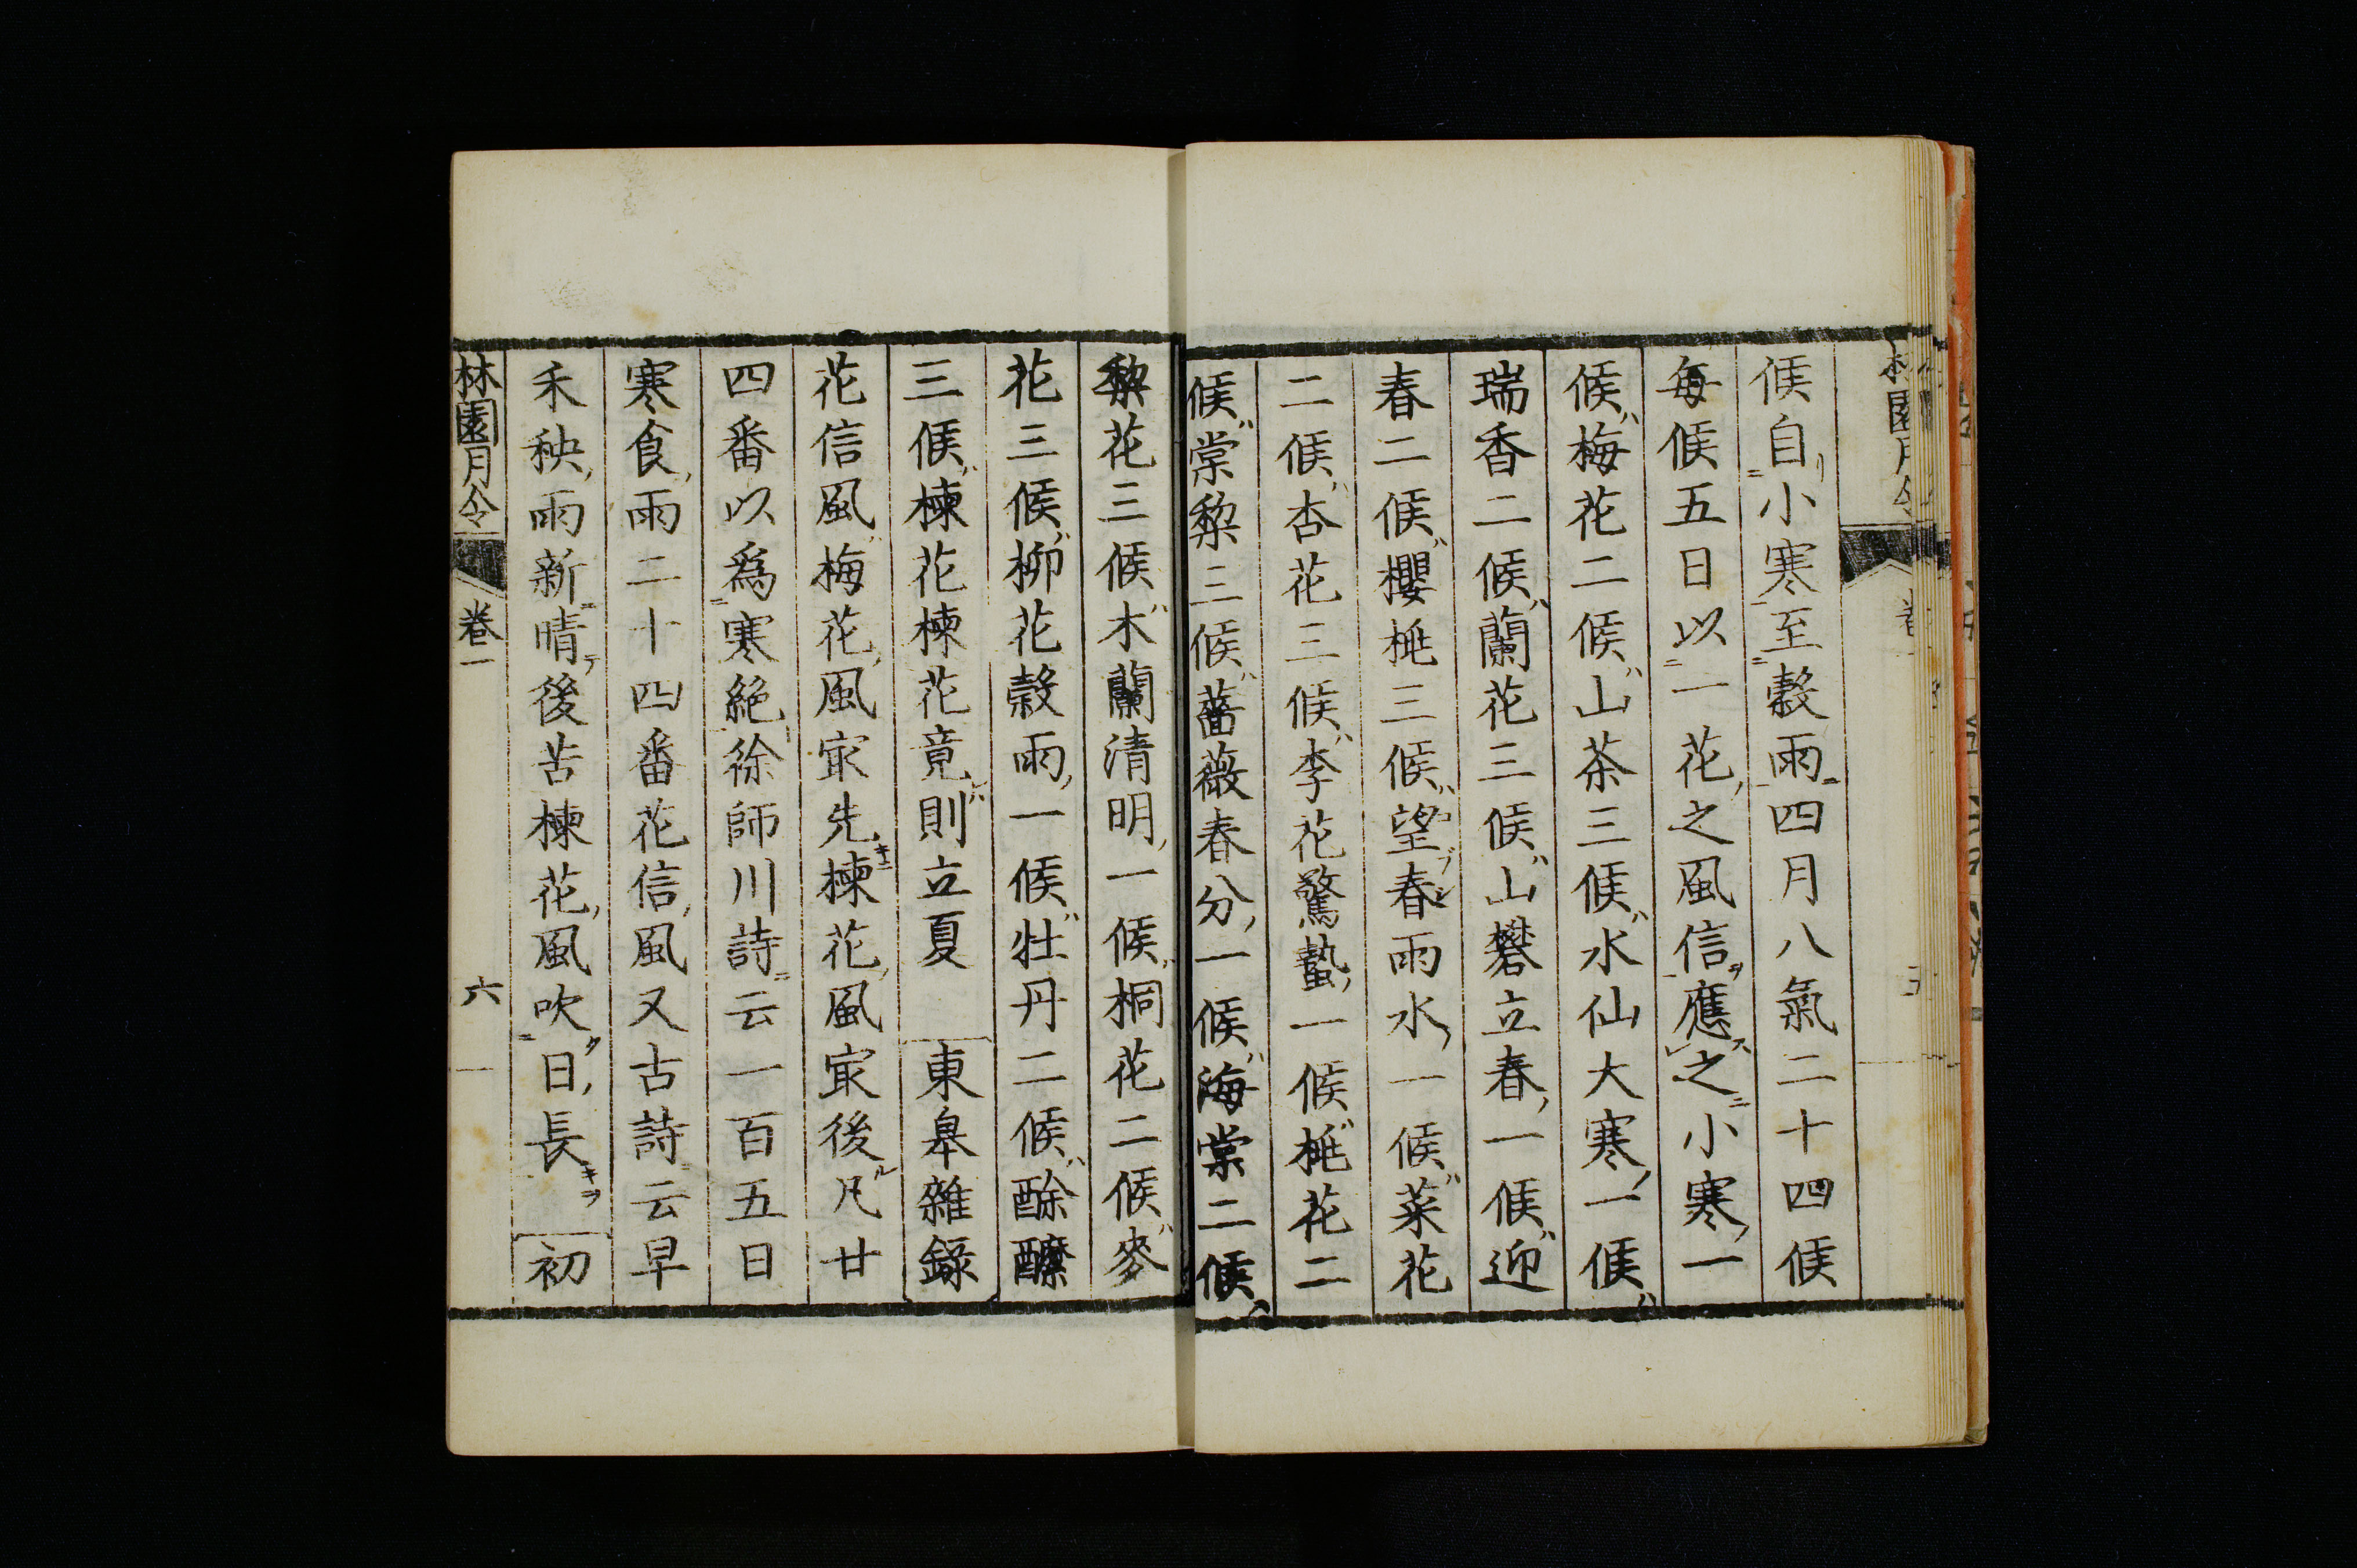 候自小寒至穀雨四月八氣二十四候
每候五日以一花之風信應之小寒一
候梅花二候山茶三候水仙大寒一候
瑞香二候蘭花三候山礬立春一候迎
春二候櫻桃三候望春雨水一候菜花
二候杏花三候李花驚蟄一候桃花二
候棠棃三候薔薇春分一候海棠二候
棃花三候木蘭清明一候桐花二候麥
花三候柳花穀雨一候牡丹二候酴醾
三候楝花楝花竟則立夏 東皐雜錄
花信風梅花風㝡先楝花風㝡後凡廿
四番以爲寒絕徐師川詩云一百五日
寒食雨二十四番花信風又古詩云早
禾秧雨新晴後苦楝花風吹日長 初
林園月令 卷一 六